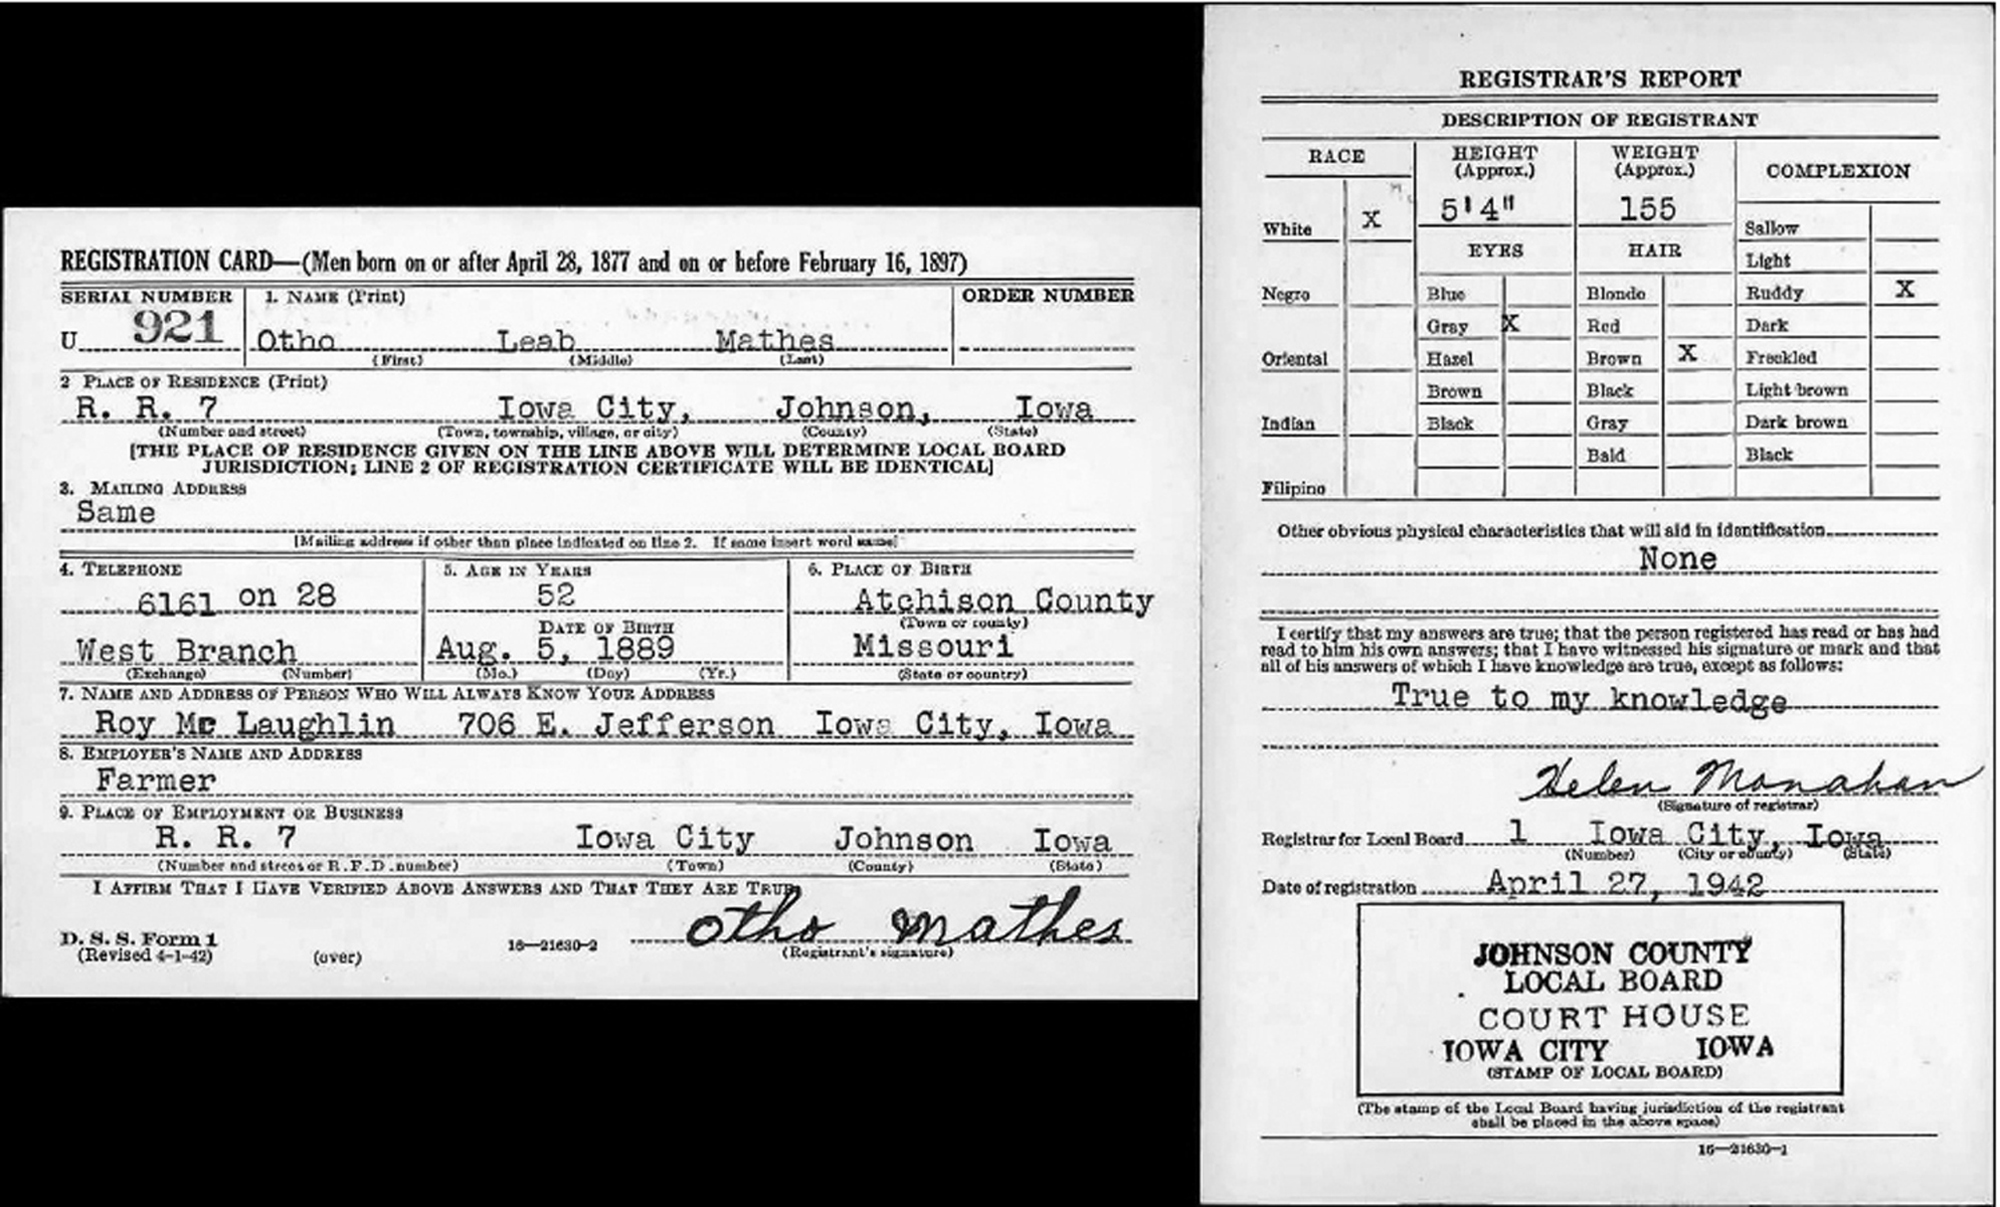 REGISTRATION CARD—(Men born on or after April 28, 1877 and on or before February 16, 1897)
SERIAL NUMBER 1. NAME (Print) ORDER NUMBER
U 921 Otho Leab Mathes
(First) (Middle) (Last)
2 PLACE OF RESIDENCE (Print)
R. R. 7 Iowa City, Johnson, Iowa
(Number and street) (Town, township, village, or city) (County) (State)
[THE PLACE OF RESIDENCE GIVEN ON THE LINE ABOVE WILL DETERMINE LOCAL BOARD
JURISDICTION; LINE 2 OF REGISTRATION CERTIFICATE WILL BE IDENTICAL]
3. MAILING ADDRESS
Same
[Mailing address if other than place indicated on line 2. If same insert word same]
4. TELEPHONE 5. AGE IN YEARS 6. PLACE OF BIRTH
6161 on 28 52 Atchison County
DATE OF BIRTH (Town or county)
West Branch Aug. 5, 1889 Missouri
(Exchange) (Number) (Mo.) (Day) (Yr.) (State or country)
7. NAME AND ADDRESS OF PERSON WHO WILL ALWAYS KNOW YOUR ADDRESS
Roy Mc Laughlin 706 E. Jefferson Iowa City, Iowa
8. EMPLOYER'S NAME AND ADDRESS
Farmer
9. PLACE OF EMPLOYMENT OR BUSINESS
R. R. 7 Iowa City Johnson Iowa
(Number and street or R. F. D. number) (Town) (County) (State)
I AFFIRM THAT I HAVE VERIFIED ABOVE ANSWERS AND THAT THEY ARE TRUE.
Otho Mathes
D. S. S. Form 1 16—21630-2 (Registrant's signature)
(Revised 4-1-42) (over)
REGISTRAR'S REPORT
DESCRIPTION OF REGISTRANT
RACE HEIGHT (Approx.) WEIGHT (Approx.) COMPLEXION
White X 5'4" 155 Sallow
EYES HAIR Light
Negro Blue Blonde Ruddy X
Gray X Red Dark
Oriental Hazel Brown X Freckled
Brown Black Light brown
Indian Black Gray Dark brown
Bald Black
Filipino
Other obvious physical characteristics that will aid in identification
None
I certify that my answers are true; that the person registered has read or has had
read to him his own answers; that I have witnessed his signature or mark and that
all of his answers of which I have knowledge are true, except as follows:
True to my knowledge
Helen Monahan
(Signature of registrar)
Registrar for Local Board 1 Iowa City, Iowa
(Number) (City or county) (State)
Date of registration April 27, 1942
JOHNSON COUNTY
LOCAL BOARD
COURT HOUSE
IOWA CITY IOWA
(STAMP OF LOCAL BOARD)
(The stamp of the Local Board having jurisdiction of the registrant
shall be placed in the above space)
16—21630-1